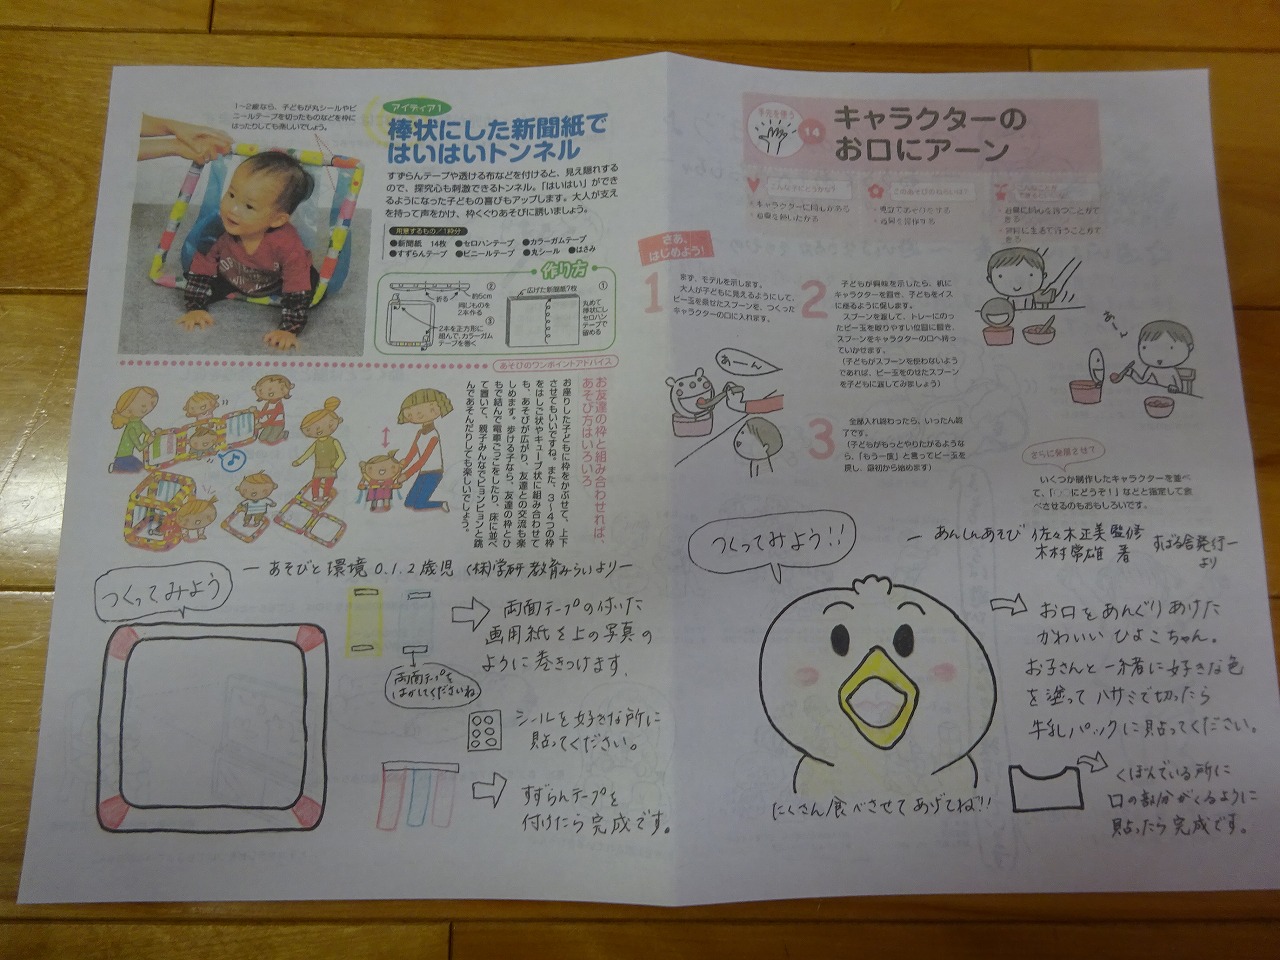 1～2歳なら、子どもが丸シールやビ
ニールテープを切ったものなどを枠に
はったりしても楽しいでしょう。
アイディア1
棒状にした新聞紙で
はいはいトンネル
すずらんテープや透ける布などを付けると、見え隠れする
ので、探究心も刺激できるトンネル。「はいはい」ができ
るようになった子どもの喜びもアップします。大人が支え
を持って声をかけ、枠くぐりあそびに誘いましょう。
用意するもの/1枠分
●新聞紙 14枚 ●セロハンテープ ●カラーガムテープ
●すずらんテープ ●ビニールテープ ●丸シール ●はさみ
作り方
①
広げた新聞紙7枚
丸めて
棒状にし
セロハン
テープで
留める
②
折る
約5cm
同じものを
2本作る
③
2本を正方形に
組んで、カラーガム
テープを巻く
あそびのワンポイントアドバイス
お友達の枠と組み合わせれば、
あそび方はいろいろ
お座りした子どもに枠をかぶせて、上下
させてもいいですね。また、3～4つの枠
をはしご状やキューブ状に組み合わせて
も、あそびが広がり、友達との交流も楽
しめます。歩ける子なら、友達の枠とひ
もで結んで電車ごっこをしたり、床に並べ
て置いて、親子みんなでピョンピョンと跳
んであそんだりしても楽しいでしょう。
ーあそびと環境0.1.2歳児 (株)学研教育みらいよりー
つくってみよう
両面テープの付いた
画用紙を上の写真の
ように巻きつけます.
両面テープを
はがしてくださいね
シールを好きな所に
貼ってください。
すずらんテープを
付けたら完成です。
手元を使う
14
キャラクターの
お口にアーン
こんな子にどうかな?
・キャラクターに関心がある
このあそびのねらいは?
・見立てあそびをする
・道具を操作する
さあ、
はじめよう!
1
まず、モデルを示します。
大人が子どもに見えるようにして、
ビー玉を乗せたスプーンを、つくった
キャラクターの口に入れます。
2
子どもが興味を示したら、机に
キャラクターを置き、子どもをイス
に座るように促します。
スプーンを渡して、トレーにのっ
たビー玉を取りやすい位置に置き、
スプーンをキャラクターの口へ持っ
ていかせます。
(子どもがスプーンを使わないよう
であれば、ビー玉をのせたスプーン
を子どもに渡してみましょう)
あーん
あーん
3
全部入れ終わったら、いったん終
了です。
(子どもがもっとやりたがるような
ら、「もう一度」と言ってビー玉を
戻し、最初から始めます)
さらに発展させて
いくつか制作したキャラクターを並べ
て、「○○にどうぞ!」などと指定して食
べさせるのもおもしろいです。
ーあんしんあそび 佐々木正美 監修
木村常雄 著
すばる舎発行ー
より
つくってみよう!!
お口をあんぐりあけた
かわいいひよこちゃん。
お子さんと一緒に好きな色
を塗ってハサミで切ったら
牛乳パックに貼ってください。
くぼんでいる所に
口の部分がくるように
貼ったら完成です。
たくさん食べさせてあげてね!!